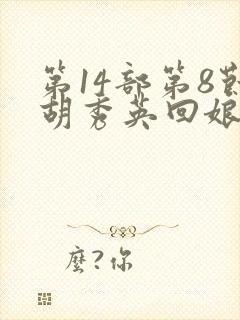 第14部第8
胡秀英回娘
麽?你